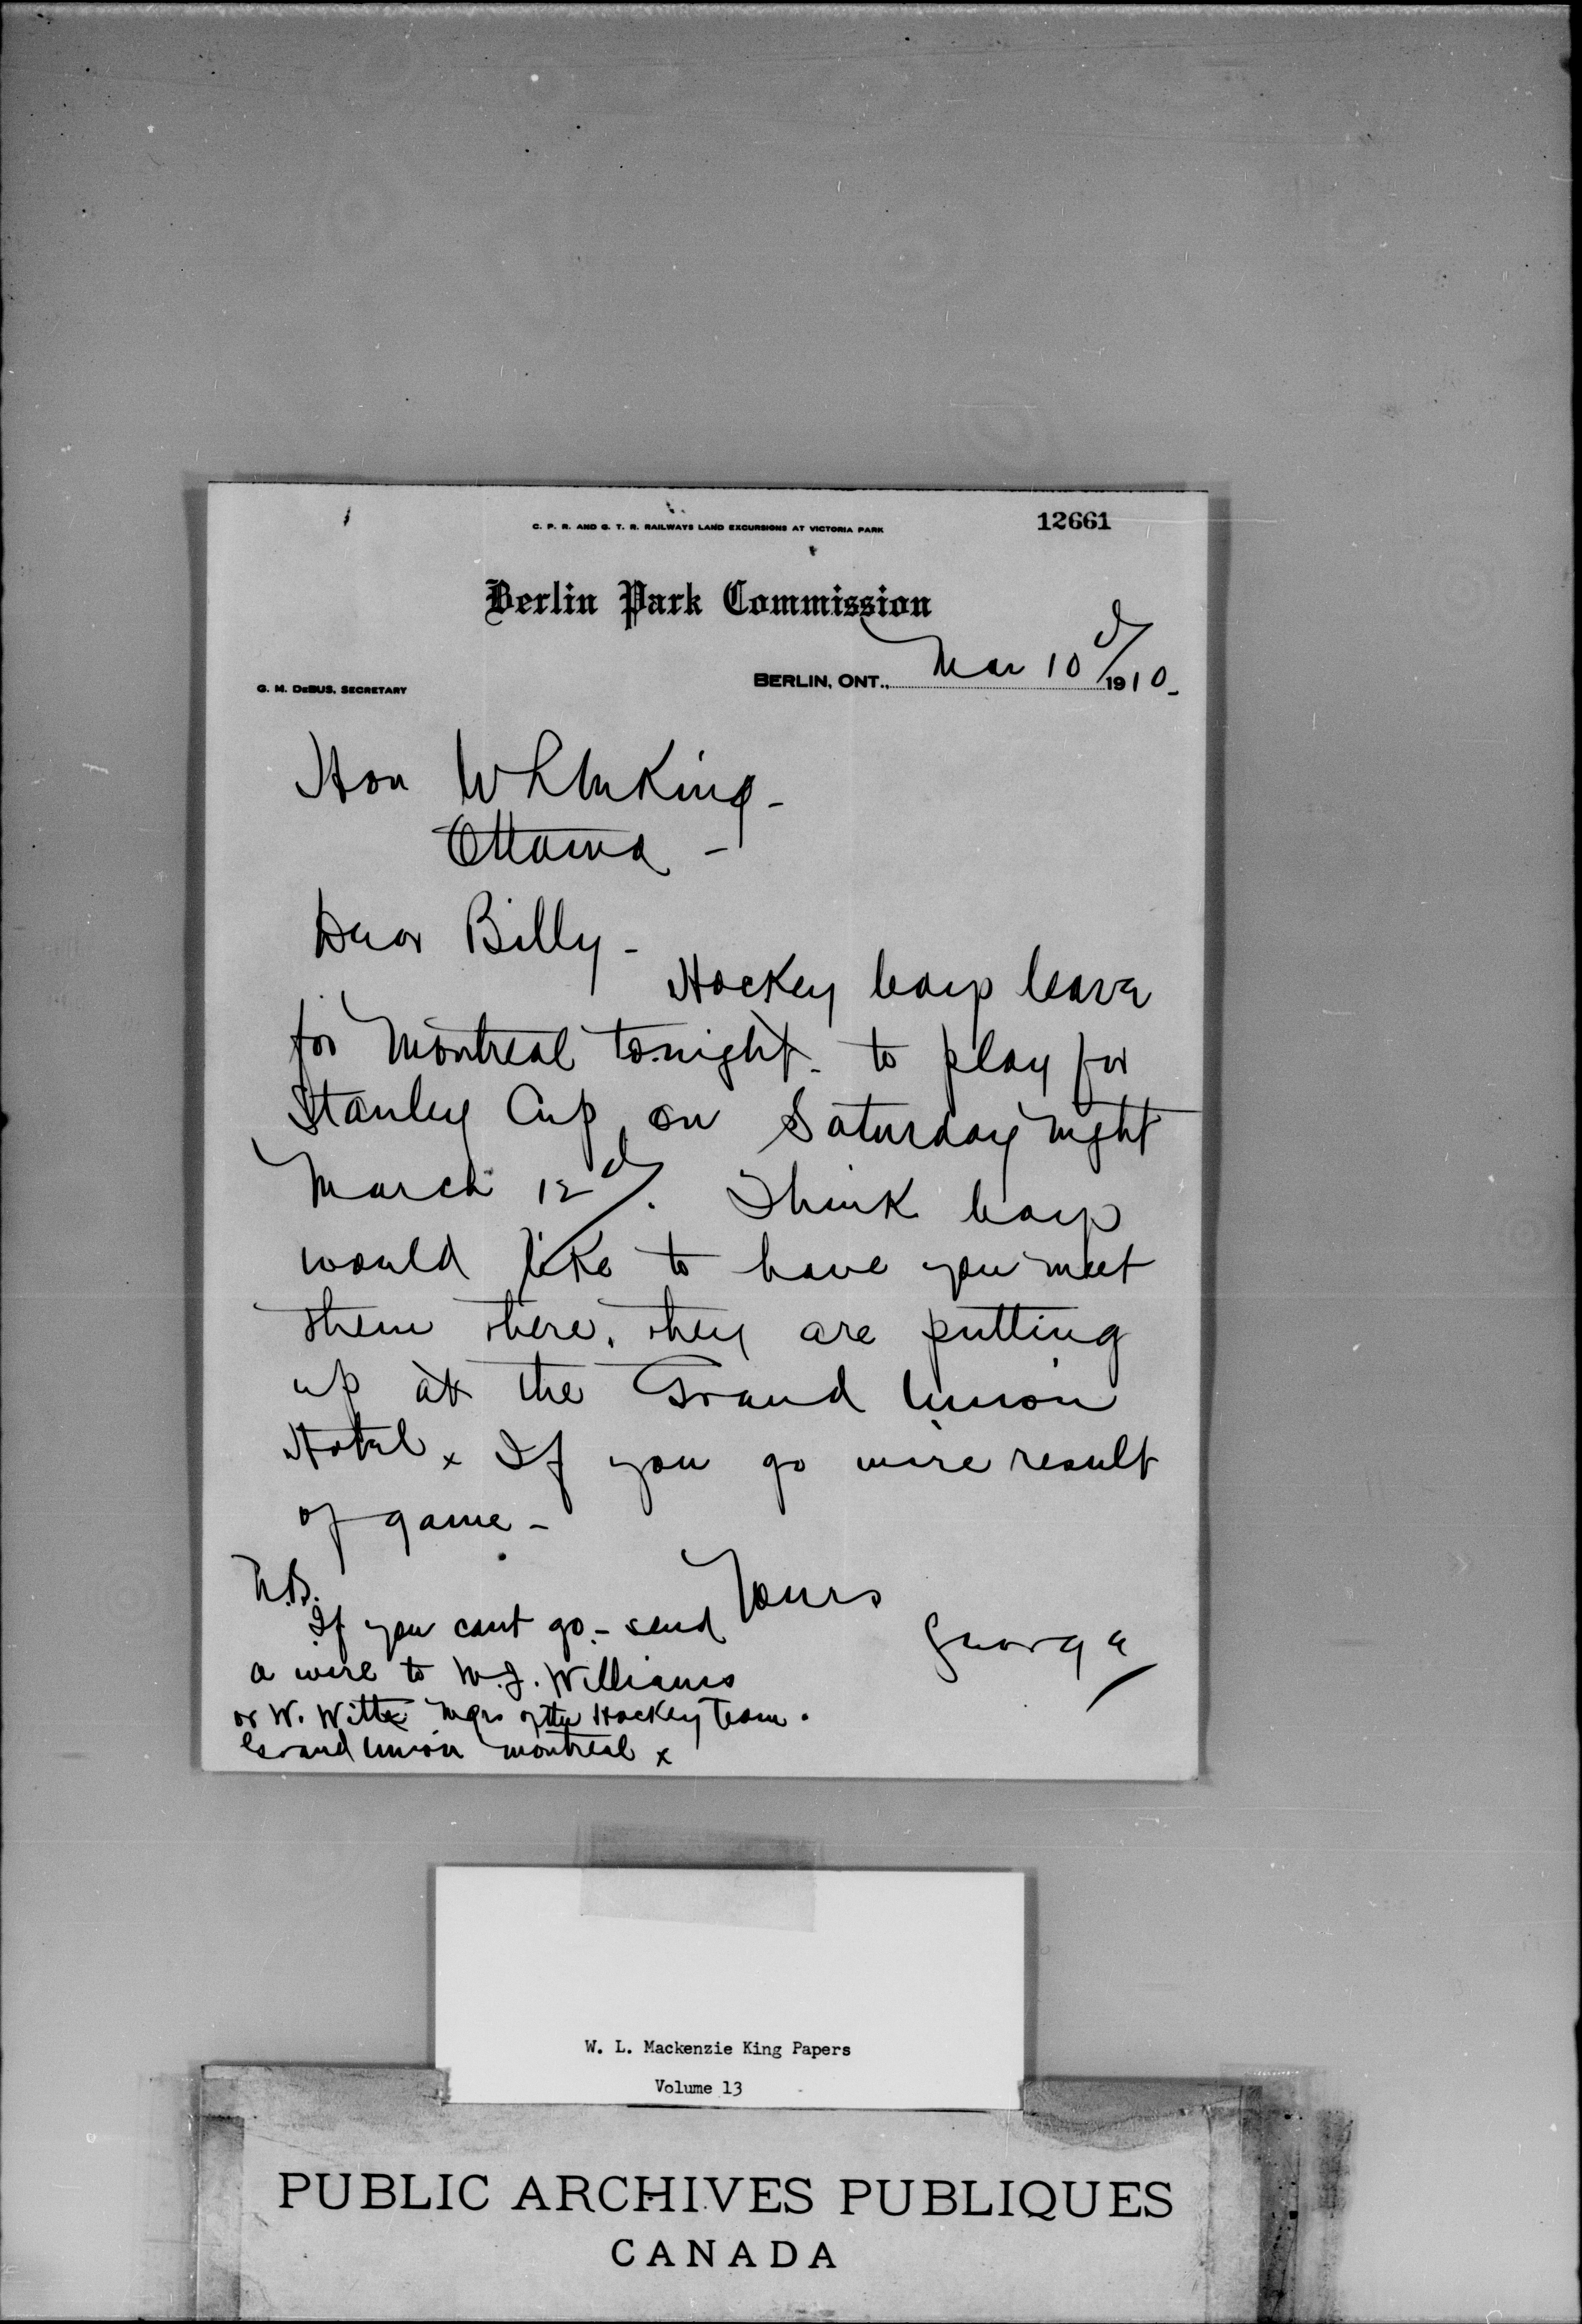 C. P. R. AND G. T. R. RAILWAYS LAND EXCURSIONS AT VICTORIA PARK
12661
Berlin Park Commission
G. M. DeBUS, SECRETARY
BERLIN, ONT., Mar 10 d/ 1910.
Hon W L M King -
Ottawa -
Dear Billy -
Hockey boys leave
for Montreal tonight - to play for
Stanley Cup, on Saturday night
March 12 d/. Think boys
would like to have you meet
them there. They are putting
up at the Grand Union
Hotel x If you go wire result
of game -
Yours
George
N.B.
If you cant go - send
a wire to W.J. Williams
or W. Witte Mgrs of the Hockey Team.
Grand Union Montreal x
W. L. Mackenzie King Papers
Volume 13
PUBLIC ARCHIVES PUBLIQUES
CANADA